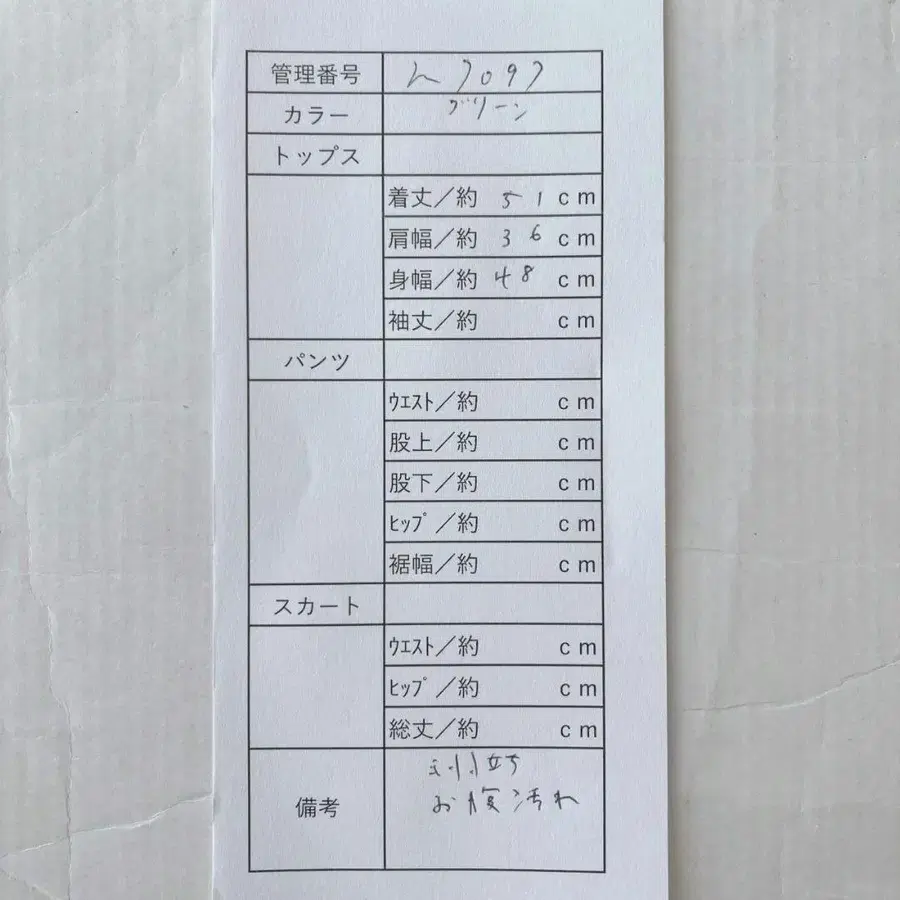 管理番号 ん7097
カラー グリーン
トップス
着丈／約 51 cm
肩幅／約 36 cm
身幅／約 48 cm
袖丈／約 cm
パンツ
ｳｴｽﾄ／約 cm
股上／約 cm
股下／約 cm
ﾋｯﾌﾟ／約 cm
裾幅／約 cm
スカート
ｳｴｽﾄ／約 cm
ﾋｯﾌﾟ／約 cm
総丈／約 cm
備考
毛羽立ち
お腹汚れ